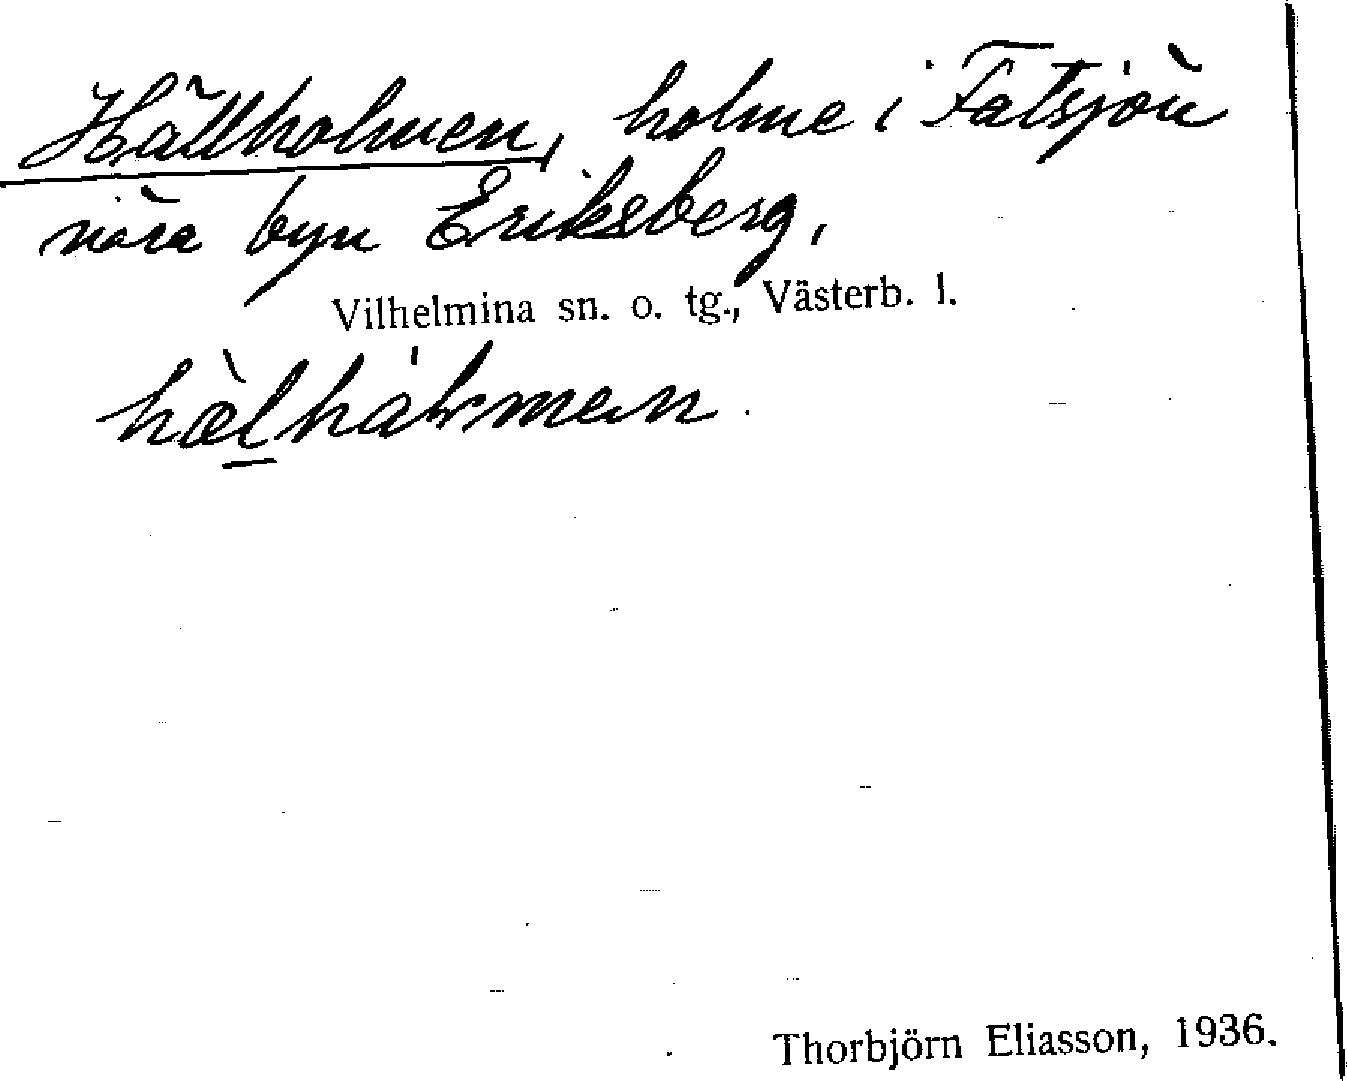 Hällholmen, holme i Fatsjön
nära byn Eriksberg,
Vilhelmina sn. o. tg., Västerb. l.
Thorbjörn Eliasson, 1936.